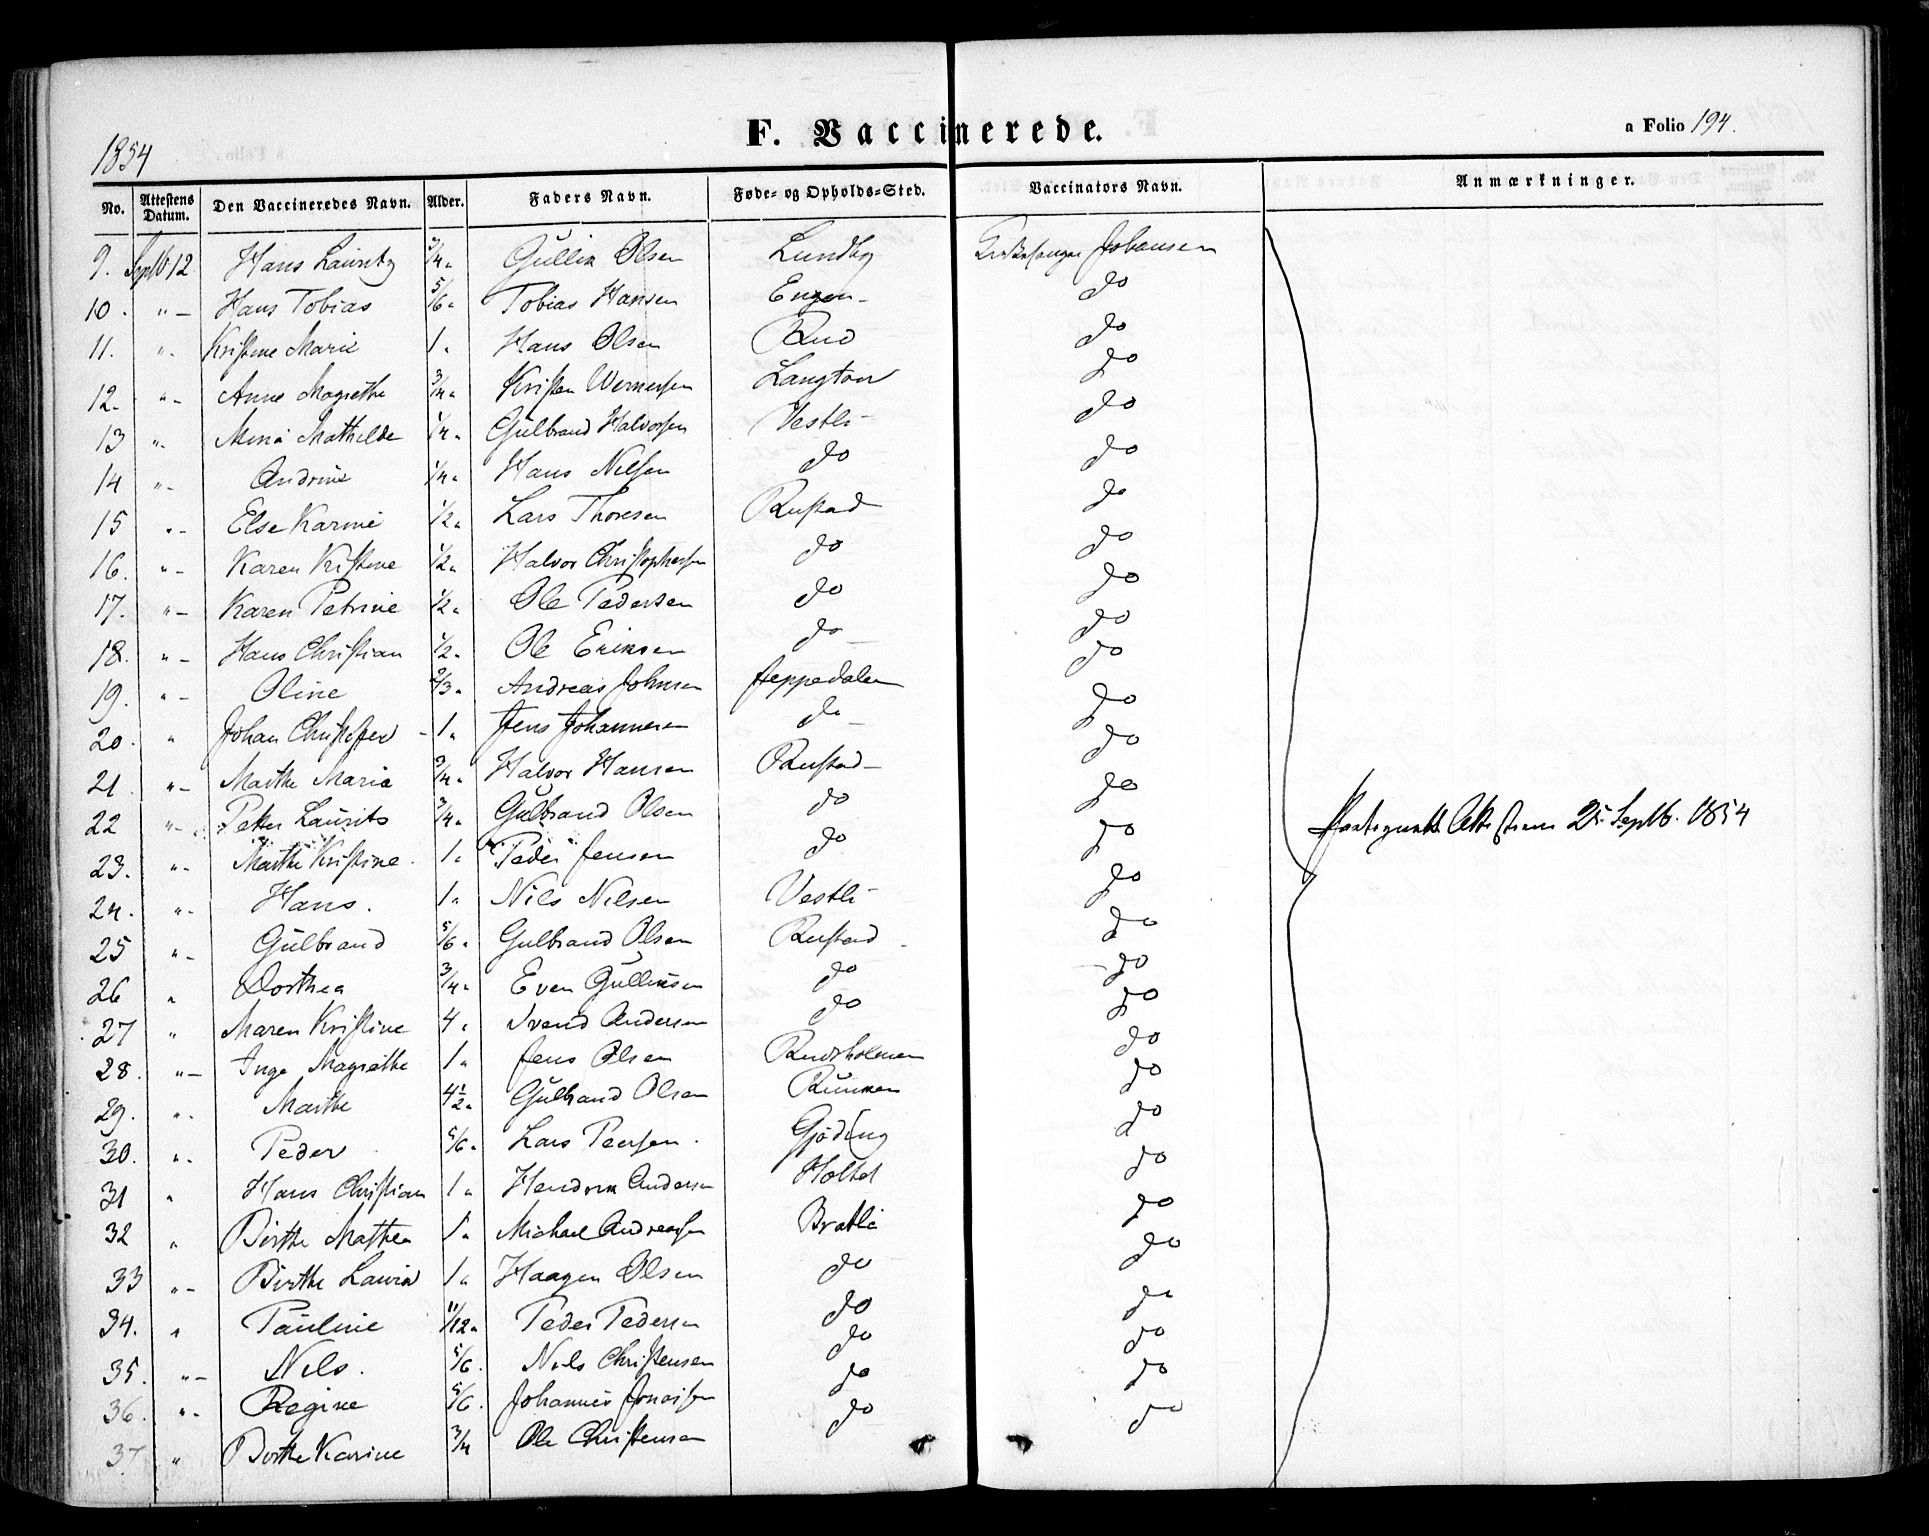 F. Vaccinerede.
a Folio 194.
1854
No. Attestens Datum. Den Vaccineredes Navn. Alder. Faders Navn. Føde- og Opholds-Sted. Vaccinators Navn. Anmærkninger.
9. Septb 12 Hans Lauritz 3/4 " Gullik Olsen Lundby Johansen
10. " — Hans Tobias 5/6 " Tobias Hansen Engen — do
11. " - Kristine Marie 1 " Hans Olsen Rud do
12. " - Anne Magrethe 3/4 " Kristen Wernersen Langton do
13 " - Mina Mathilde 1/4 " Gulbrand Halvorsen Vestli - do
14 " - Andrine 1/4 " Hans Nilsen do do
15 " - Else Karine 1/2 " Lars Thoresen Rustad do
16. " - Karen Kristine 1/2 " Halvor Christophersen do do
17. " — Karen Petrine 1/2 " Ole Pedersen do do
18. " — Hans Christian 1/2 " Ole Eriksen do — do
19. " - Oline 2/3 " Andreas Johnsen Jeppedalen do
20. " Johan Christofer - 1 " Jens Johannesen do — do
21. " - Marthe Maria 3/4 " Halvor Hansen Rustad — do
22 " - Petter Laurits 3/4 " Gulbrand Olsen do do 25 Septb. 1854
23. " - Marthe Kristine. 1 " Peder Jensen do do
24. " - Hans. 1 " Nils Nilsen Vestli do
25 " - Gulbrand 5/6 " Gulbrand Olsen Rustad - do
26 " Dorthea 3/4 " Even Gulliksen do do
27 " Maren Kristine 4 " Svend Andersen do do
28. " — Inge Magrethe 1 " Jens Olsen Rudsholmen do
29. " - Marthe 4 1/2 " Gulbrand Olsen do
30. " - Peder 5/6 " Lars Peersen. Gjøding do
31 " Hans Christian 1 " Hendrik Andersen Holtet do
32 " Birthe Mathea 1 " Michael Andreassen Bratli do
33 " - Birthe Lauria 1 " Haagen Olsen do do
34. " Pauline 11/12 " Peder Pedersen do do
35. " — Nils. 5/6. Nils Christensen do do
36. " - Regine 5/6. Johannes Jonassen do do
37 " Birthe Karine 3/4 Ole Christensen do do